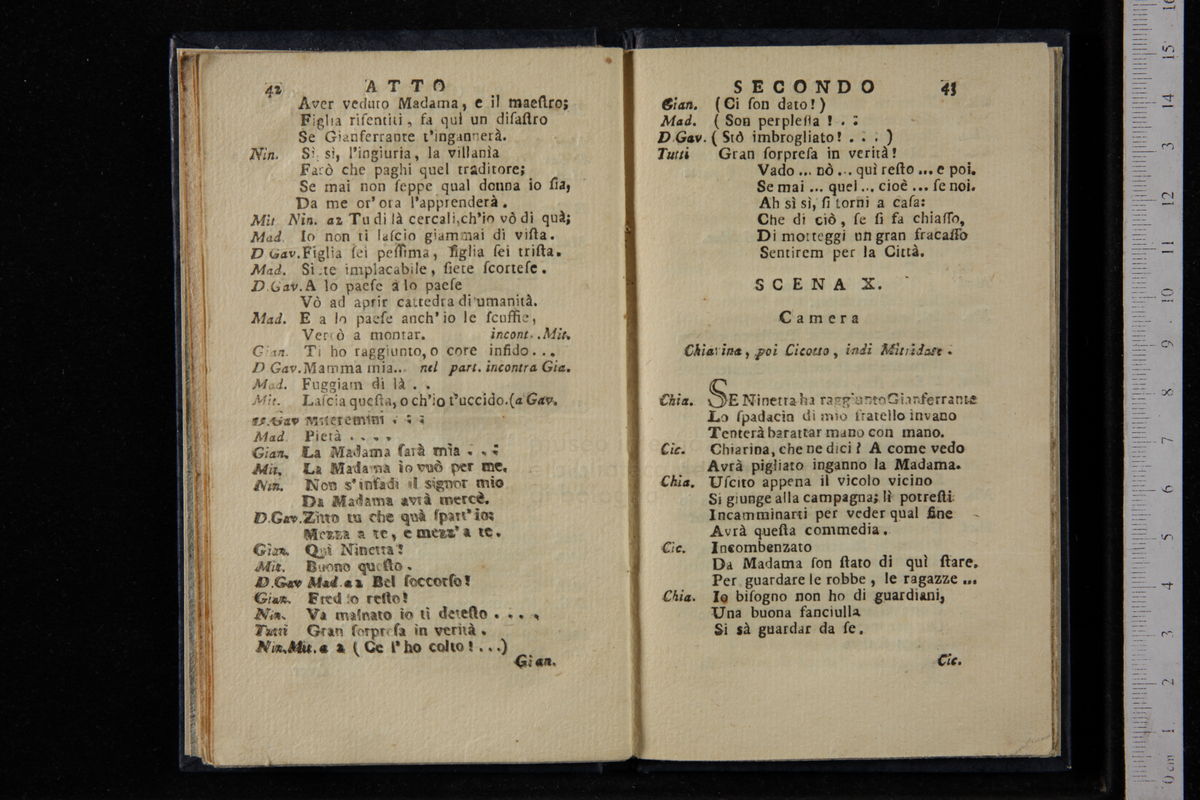 42 ATTO
Aver veduto Madama, e il maeſtro;
Figlia riſentiti, fa quì un diſaſtro
Se Gianferrante t'ingannerà.
Nin. Sì, sì, l'ingiuria, la villanìa
Farò che paghi quel traditore;
Se mai non ſeppe qual donna io ſia,
Da me or' ora l'apprenderà.
Mit Nin. a2 Tu di là cercali, ch'io vò di quà;
Mad. Io non ti laſcio giammai di viſta.
D Gav. Figlia ſei peſſima, figlia ſei triſta.
Mad. Siete implacabile, ſiete ſcorteſe.
D.Gav. A lo paeſe a lo paeſe
Vò ad aprir cattedra di umanità.
Mad. E a lo paeſe anch'io le ſcuffie,
Verrò a montar. incont. Mit.
Gian. Ti ho raggiunto, o core infido...
D Gav. Mamma mia... nel part. incontra Gia.
Mad. Fuggiam di là . .
Mit. Laſcia queſta, o ch'io t'uccido. (a Gav.
D.Gav Miſeremini . : :
Mad. Pietà . . . .
Gian. La Madama ſarà mia . . :
Mit. La Madama io vuò per me.
Nin. Non s'infadi il signor mio
Da Madama avrà mercè.
D.Gav. Zitto tu che quà ſpart'io;
Mezza a te, e mezz'a te.
Gian. Quì Ninetta?
Mit. Buono queſto.
D.Gav Mad. a2 Bel ſoccorſo!
Gian. Freddo reſto!
Nin. Va malnato io ti deteſto . . . .
Tutti Gran ſorpreſa in verità.
Nin. Mit. a 2 (Ce l'ho colto! ...)
Gian.
SECONDO 43
Gian. (Ci ſon dato!)
Mad. (Son perpleſſa! . :
D.Gav. (Stò imbrogliato! . . . )
Tutti Gran ſorpreſa in verità!
Vado ... nò ... quì reſto ... e poi.
Se mai ... quel ... cioè ... ſe noi.
Ah sì sì, ſi torni a caſa:
Che di ciò, ſe ſi fa chiaſſo,
Di motteggi un gran fracaſſo
Sentirem per la Città.
SCENA X.
Camera
Chiarina, poi Cicotto, indi Mitridate.
Chia. SE Ninetta ha raggiunto Gianferrante
Lo ſpadacin di mio fratello invano
Tenterà barattar mano con mano.
Cic. Chiarina, che ne dici? A come vedo
Avrà pigliato inganno la Madama.
Chia. Uſcito appena il vicolo vicino
Si giunge alla campagna; lì potreſti
Incamminarti per veder qual fine
Avrà queſta commedia.
Cic. Incombenzato
Da Madama ſon ſtato di quì ſtare.
Per guardare le robbe, le ragazze ...
Chia. Io biſogno non ho di guardiani,
Una buona fanciulla
Si sà guardar da ſe.
Cic.